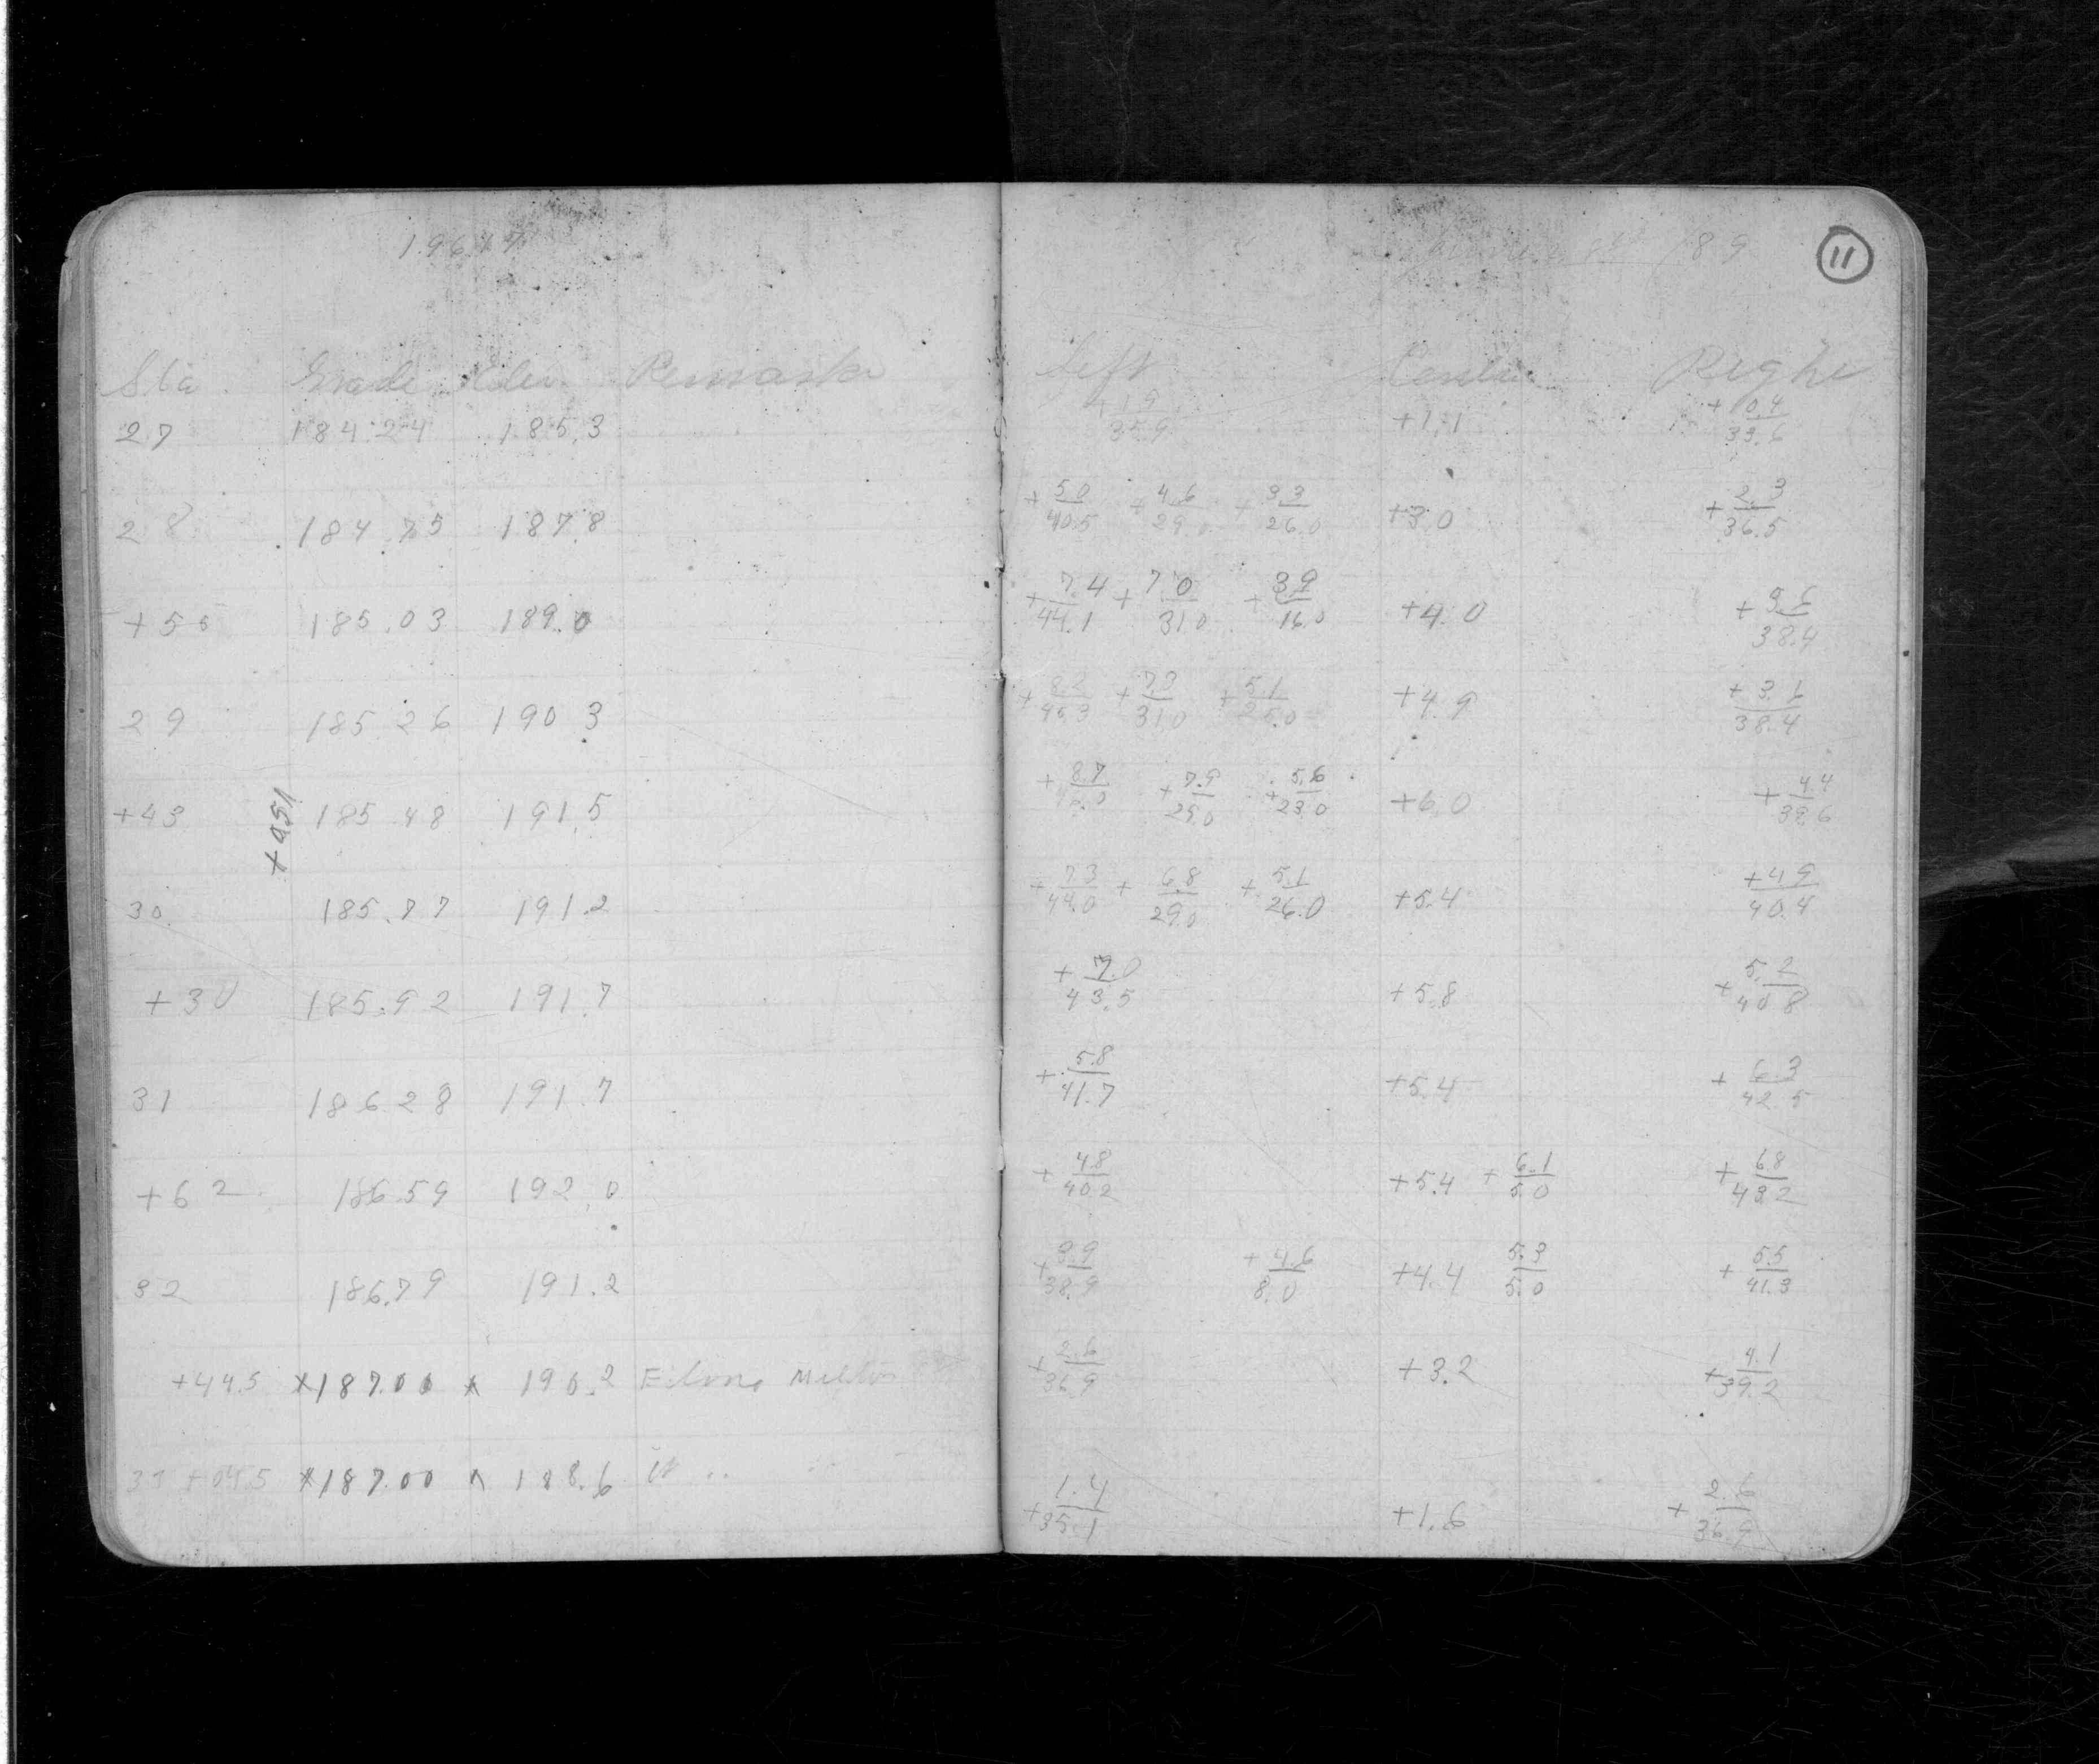 196.17 /89 11
Sta Grade Elev. Remarks Left Centre Right
27 184.24 185.3 +1.9/35.9 +1.1 +0.4/33.6
28 184.75 187.8 +5.0/40.5 +4.6/29.0 +3.3/26.0 +3.0 +2.3/36.5
+55 185.03 189.0 +7.4/44.1 +7.0/31.0 +3.9/16.0 +4.0 +3.6/38.4
29 185.26 190.3 +8.2/45.3 +7.3/31.0 +5.1/25.0 +4.9 +3.6/38.4
+43 +951 185.48 191.5 +8.7/46.0 +7.9/29.0 +5.6/23.0 +6.0 +4.4/39.6
30 185.77 191.2 +7.3/44.0 +6.8/29.0 +5.1/26.0 +5.4 +4.9/40.4
+30 185.92 191.7 +7.0/43.5 +5.8 +5.2/40.8
31 186.28 191.7 +5.8/41.7 +5.4 +6.3/42.5
+62 186.59 192.0 +4.8/40.2 +5.4 +6.1/5.0 +6.8/43.2
32 186.79 191.2 +3.9/38.9 +4.6/8.0 +4.4 5.3/5.0 +5.5/41.3
+44.5 ×187.00 × 190.2 +2.6/36.9 +3.2 +4.1/39.2
33 +04.5 ×187.00 × 188.6 +1.4/35.1 +1.6 +2.6/36.9